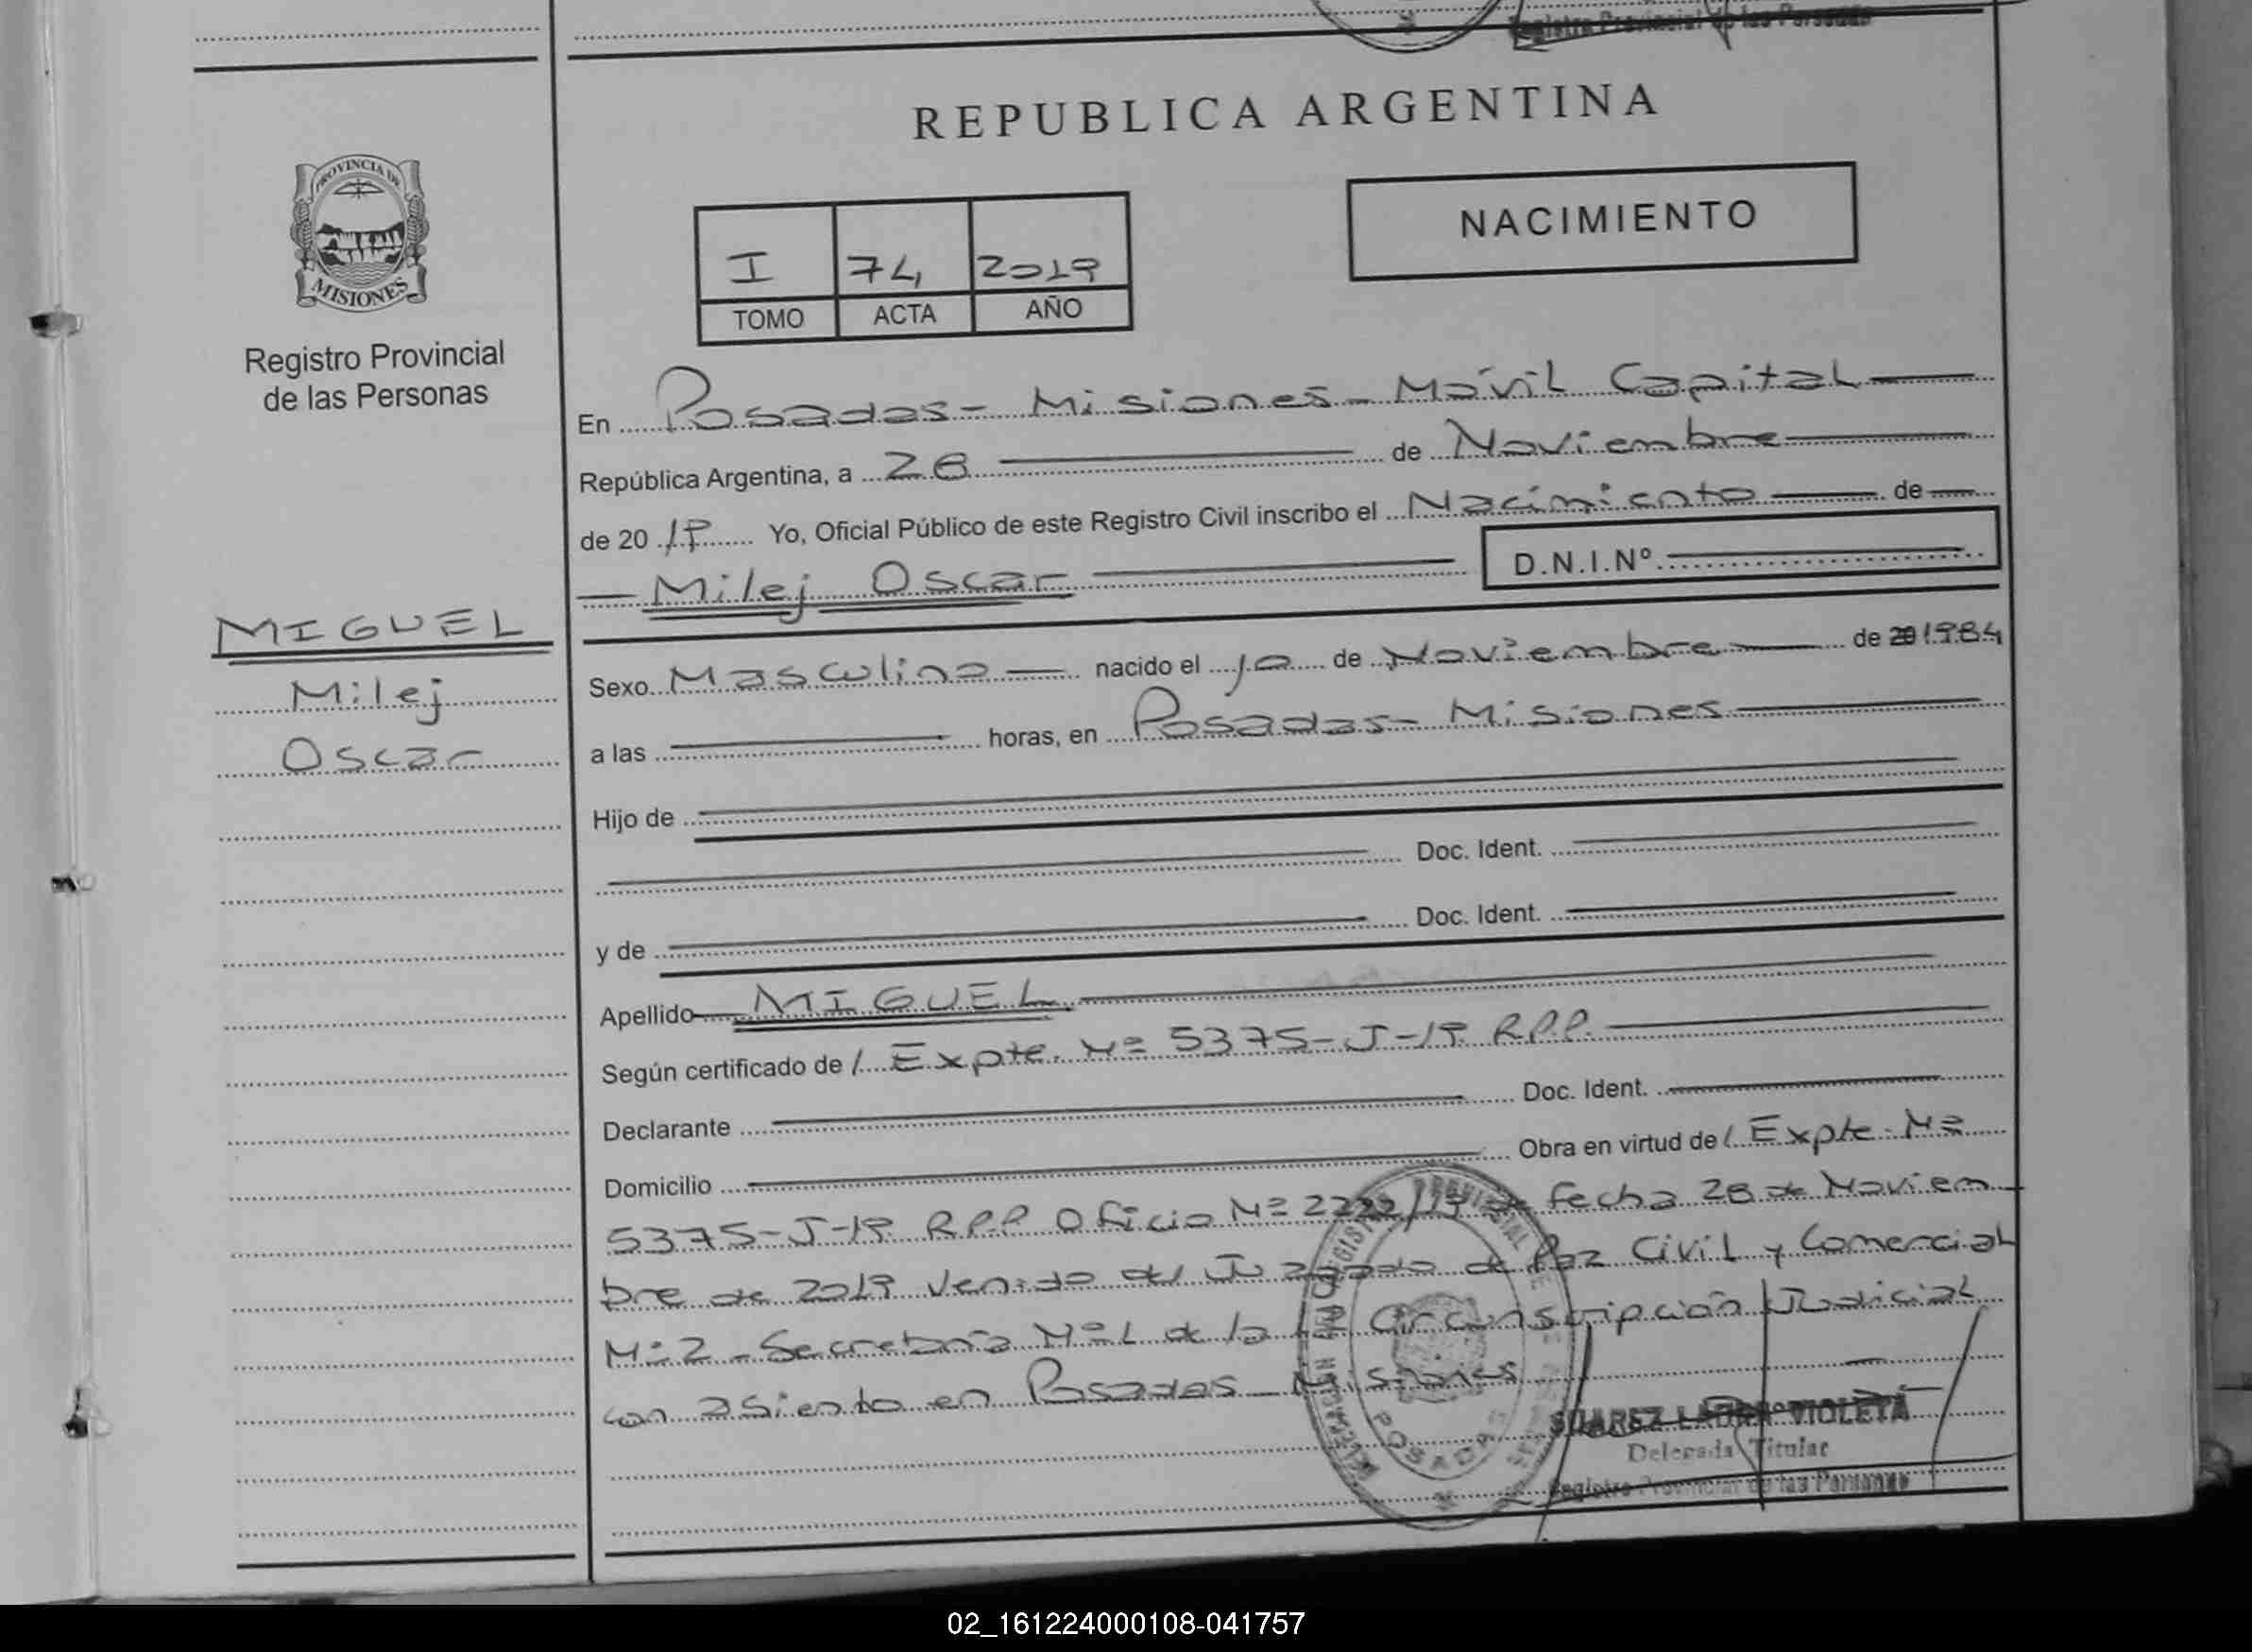 Registro Provincial de las Personas
REPUBLICA ARGENTINA
PROVINCIA DE
MISIONES
Registro Provincial
de las Personas
I 74 2019
TOMO ACTA AÑO
NACIMIENTO
En Posadas - Misiones - Móvil Capital
República Argentina, a 28 de Noviembre
de 2019 Yo, Oficial Público de este Registro Civil inscribo el Nacimiento de
Milej Oscar D.N.I.Nº
MIGUEL
Milej
Oscar
Sexo Masculino nacido el 10 de Noviembre de 1984
a las horas, en Posadas - Misiones
Hijo de
Doc. Ident.
y de Doc. Ident.
Apellido MIGUEL
Según certificado de / Expte. Nº 5375-J-19. R.P.P.
Declarante Doc. Ident.
Domicilio Obra en virtud de / Expte. Nº
5375-J-19. R.P.P Oficio Nº 2222/19 de fecha 28 de Noviem
bre de 2019 venido del Juzgado de Paz Civil y Comercial
Nº 2 - Secretaría Nº 1 de la Circunscripción Judicial
con asiento en Posadas - Misiones
POSADAS
SUAREZ LAURA VIOLETA
Delegada Titular
Registro Provincial de las Personas
02_161224000108-041757